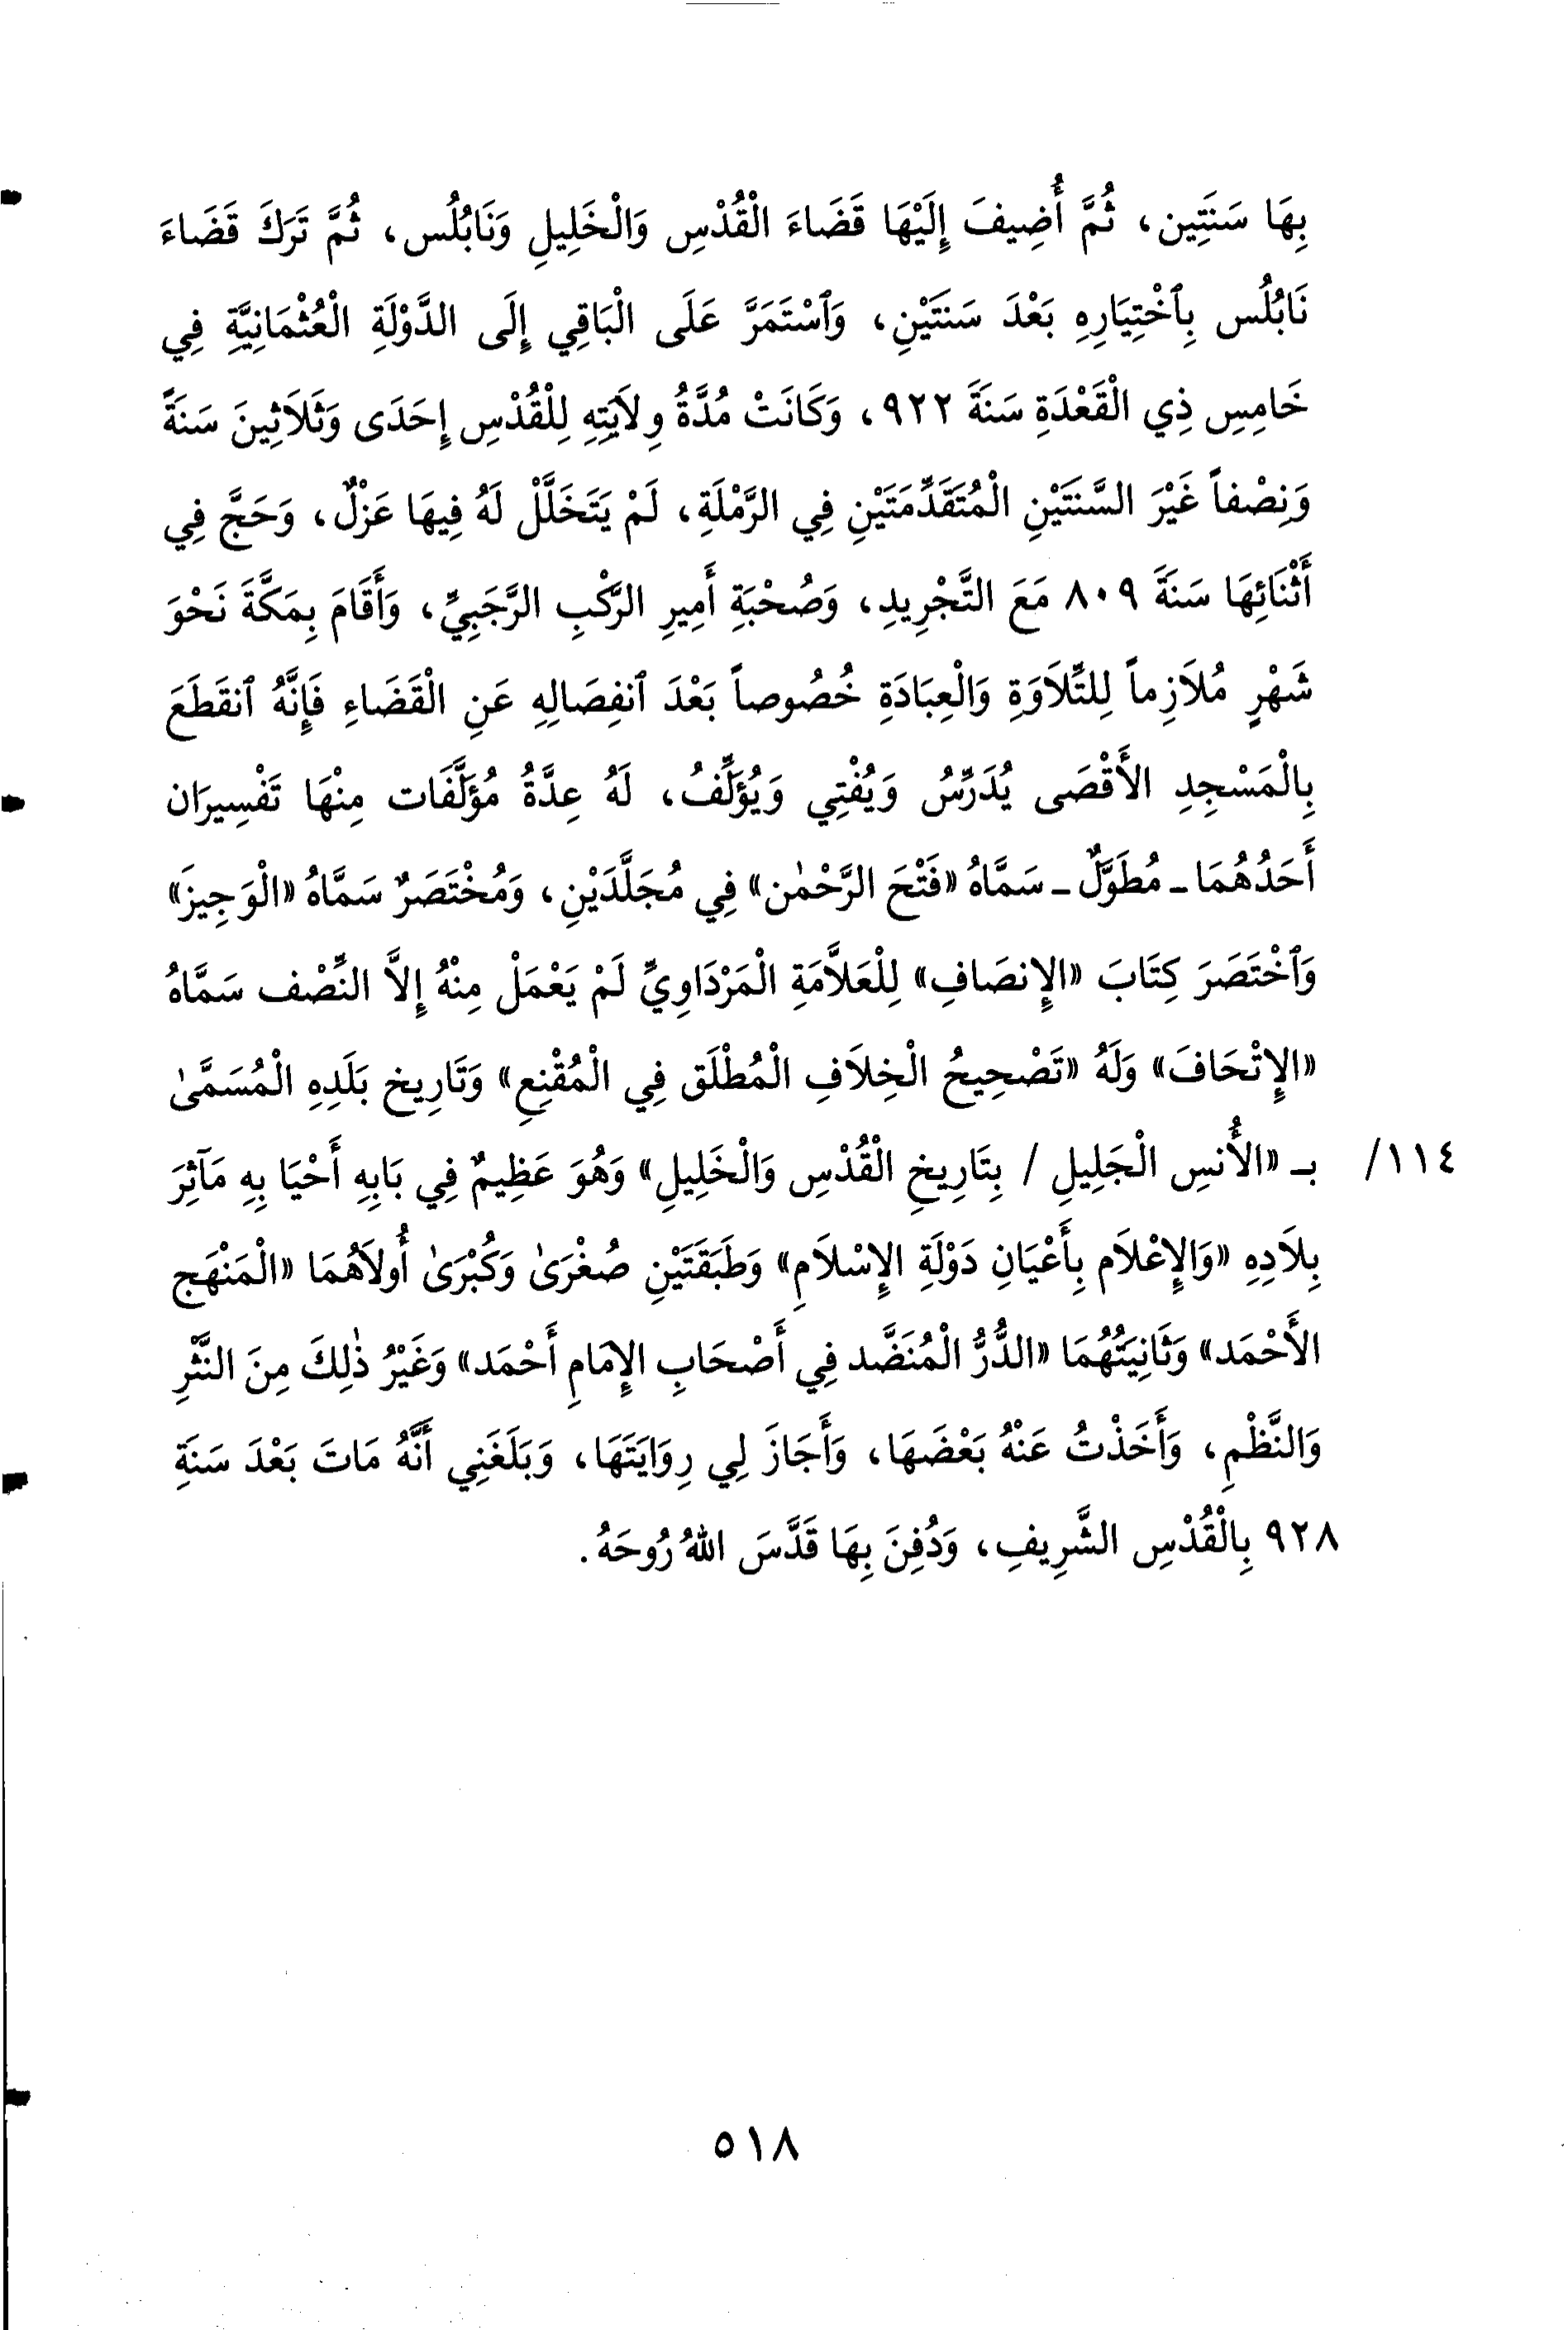 بِهَا سَنَتِين، ثُمَّ أُضِيفَ إِلَيْهَا قَضَاءَ الْقُدْسِ وَالْخَلِيلِ وَنَابُلُس، ثُمَّ تَرَكَ قَضَاءَ
نَابُلُس بِٱخْتِيَارِهِ بَعْدَ سَنَتَيْنِ، وَٱسْتَمَرَّ عَلَى الْبَاقِي إِلَى الدَّوْلَةِ الْعُثْمَانِيَّةِ فِي
خَامِسِ ذِي الْقَعْدَةِ سَنَةَ ٩٢٢، وَكَانَتْ مُدَّةُ وِلاَيَتِهِ لِلْقُدْسِ إِحَدَى وَثَلاَثِينَ سَنَةً
وَنِصْفاً غَيْرَ السَّنَتَيْنِ الْمُتَقَدِّمَتَيْنِ فِي الرَّمْلَةِ، لَمْ يَتَخَلَّلْ لَهُ فِيهَا عَزْلٌ، وَحَجَّ فِي
أَثْنَائِهَا سَنَةَ ٨٠٩ مَعَ التَّجْرِيدِ، وَصُحْبَةِ أَمِيرِ الرَّكْبِ الرَّجَبِيِّ، وَأَقَامَ بِمَكَّةَ نَحْوَ
شَهْرٍ مُلاَزِماً لِلتِّلاَوَةِ وَالْعِبَادَةِ خُصُوصاً بَعْدَ ٱنفِصَالِهِ عَنِ الْقَضَاءِ فَإِنَّهُ ٱنقَطَعَ
بِالْمَسْجِدِ الأَقْصَى يُدَرِّسُ وَيُفْتِي وَيُؤَلِّفُ، لَهُ عِدَّةُ مُؤَلَّفَات مِنْهَا تَفْسِيرَان
أَحَدُهُمَا ـ مُطَوَّلٌ ـ سَمَّاهُ «فَتْحَ الرَّحْمٰن» فِي مُجَلَّدَيْنِ، وَمُخْتَصَرٌ سَمَّاهُ «الْوَجِيزَ»
وَٱخْتَصَرَ كِتَابَ «الإِنصَافِ» لِلْعَلاَّمَةِ الْمَرْدَاوِيِّ لَمْ يَعْمَلْ مِنْهُ إِلاَّ النِّصْف سَمَّاهُ
«الإِتْحَافَ» وَلَهُ «تَصْحِيحُ الْخِلاَفِ الْمُطْلَق فِي الْمُقْنِعِ» وَتَارِيخ بَلَدِهِ الْمُسَمَّىٰ
١١٤/ بـ «الأُنسِ الْجَلِيلِ / بِتَارِيخِ الْقُدْسِ وَالْخَلِيلِ» وَهُوَ عَظِيمٌ فِي بَابِهِ أَحْيَا بِهِ مَآثِرَ
بِلاَدِهِ «وَالإِعْلاَم بِأَعْيَانِ دَوْلَةِ الإِسْلاَمِ» وَطَبَقَتَيْنِ صُغْرَىٰ وَكُبْرَىٰ أُولاَهُمَا «الْمَنْهَج
الأَحْمَد» وَثَانِيَتُهُمَا «الدُّرُّ الْمُنَضَّد فِي أَصْحَابِ الإِمَامِ أَحْمَد» وَغَيْرُ ذٰلِكَ مِنَ النَّثْرِ
وَالنَّظْمِ، وَأَخَذْتُ عَنْهُ بَعْضَهَا، وَأَجَازَ لِي رِوَايَتَهَا، وَبَلَغَنِي أَنَّهُ مَاتَ بَعْدَ سَنَةِ
٩٢٨ بِالْقُدْسِ الشَّرِيفِ، وَدُفِنَ بِهَا قَدَّسَ اللهُ رُوحَهُ.
٥١٨